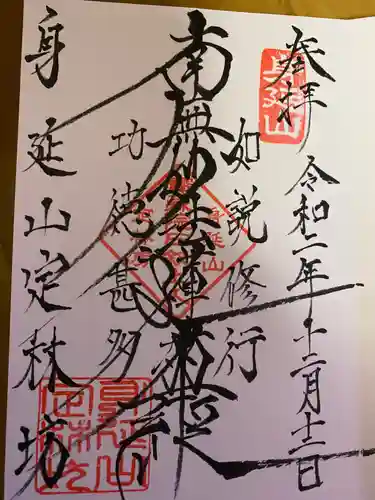 奉拝
身延山
令和二年十二月十二日
如説修行
南無妙法蓮華経
功徳甚多
身延山定林坊
身延山定林坊